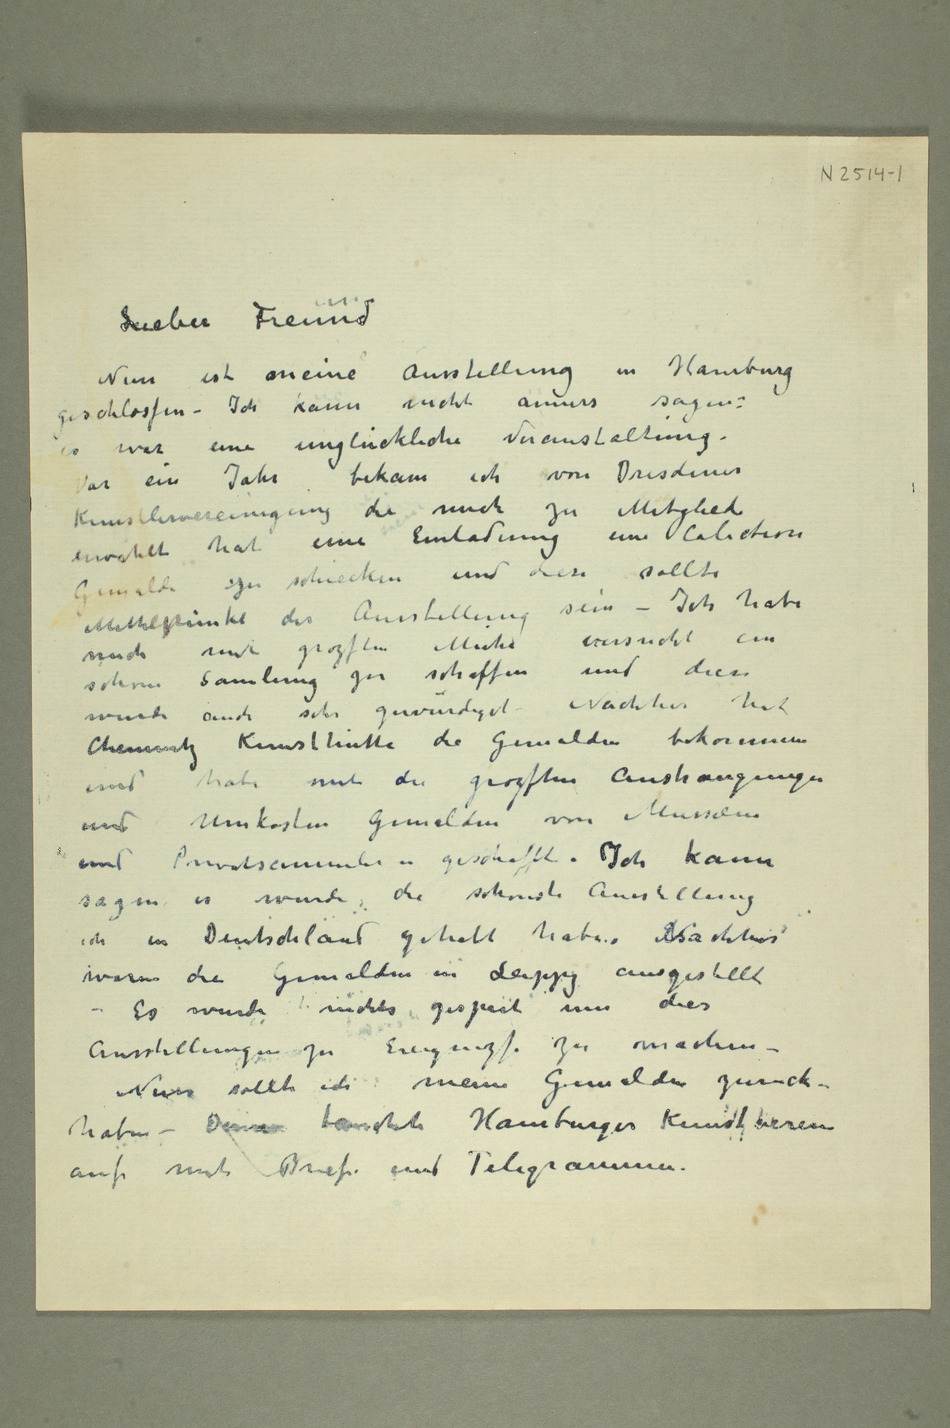 N 2514-1
Lieber Freund
Nun ist meine Ausstellung in Hamburg
geschlosfen – Ich kann nicht anners sagen:
es war eine unglückliche Veranstaltung.
Vor ein Jahr bekam ich von Dresdener
Kunstlervereinigung die mich zu Mitglied
erwählt hat eine Einladung eine Colection
Gemalde zu schiecken und diese sollte
Mittelpunkt der Ausstellung sein – Ich habe
mich mit grozften Muhe versucht ein
schöne Samlung zu schaffen und diese
wurde auch sehr gewürdiget – Nachher hat
Chemnitz Kunsthütte die Gemalden bekommen
und habe mit die grozften Anstrangungen
und Unkosten Gemalden von Museen
und Privatsammler geschafft. Ich kann
sagen es wurde die schonste Ausstellung
ich in Deutschland gehabt habe. Nachher
waren die Gemalden in Leipzig ausgestellt
– Es wurde nichts gespart um dies
Ausstellungen zu Ereignezs zu machen –
Nun sollte ich meine Gemalden zurück-
haben – Dann tauchte Hamburger Kunstverein
auf mit Briefe und Telegrammen.